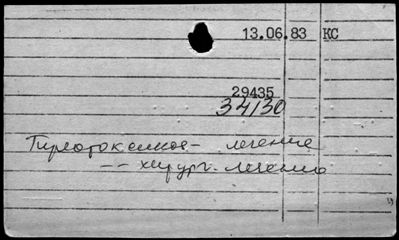 13.06.83 КС
29435
34130
Тиреотоксикоз - лечение
-- хирург. лечение